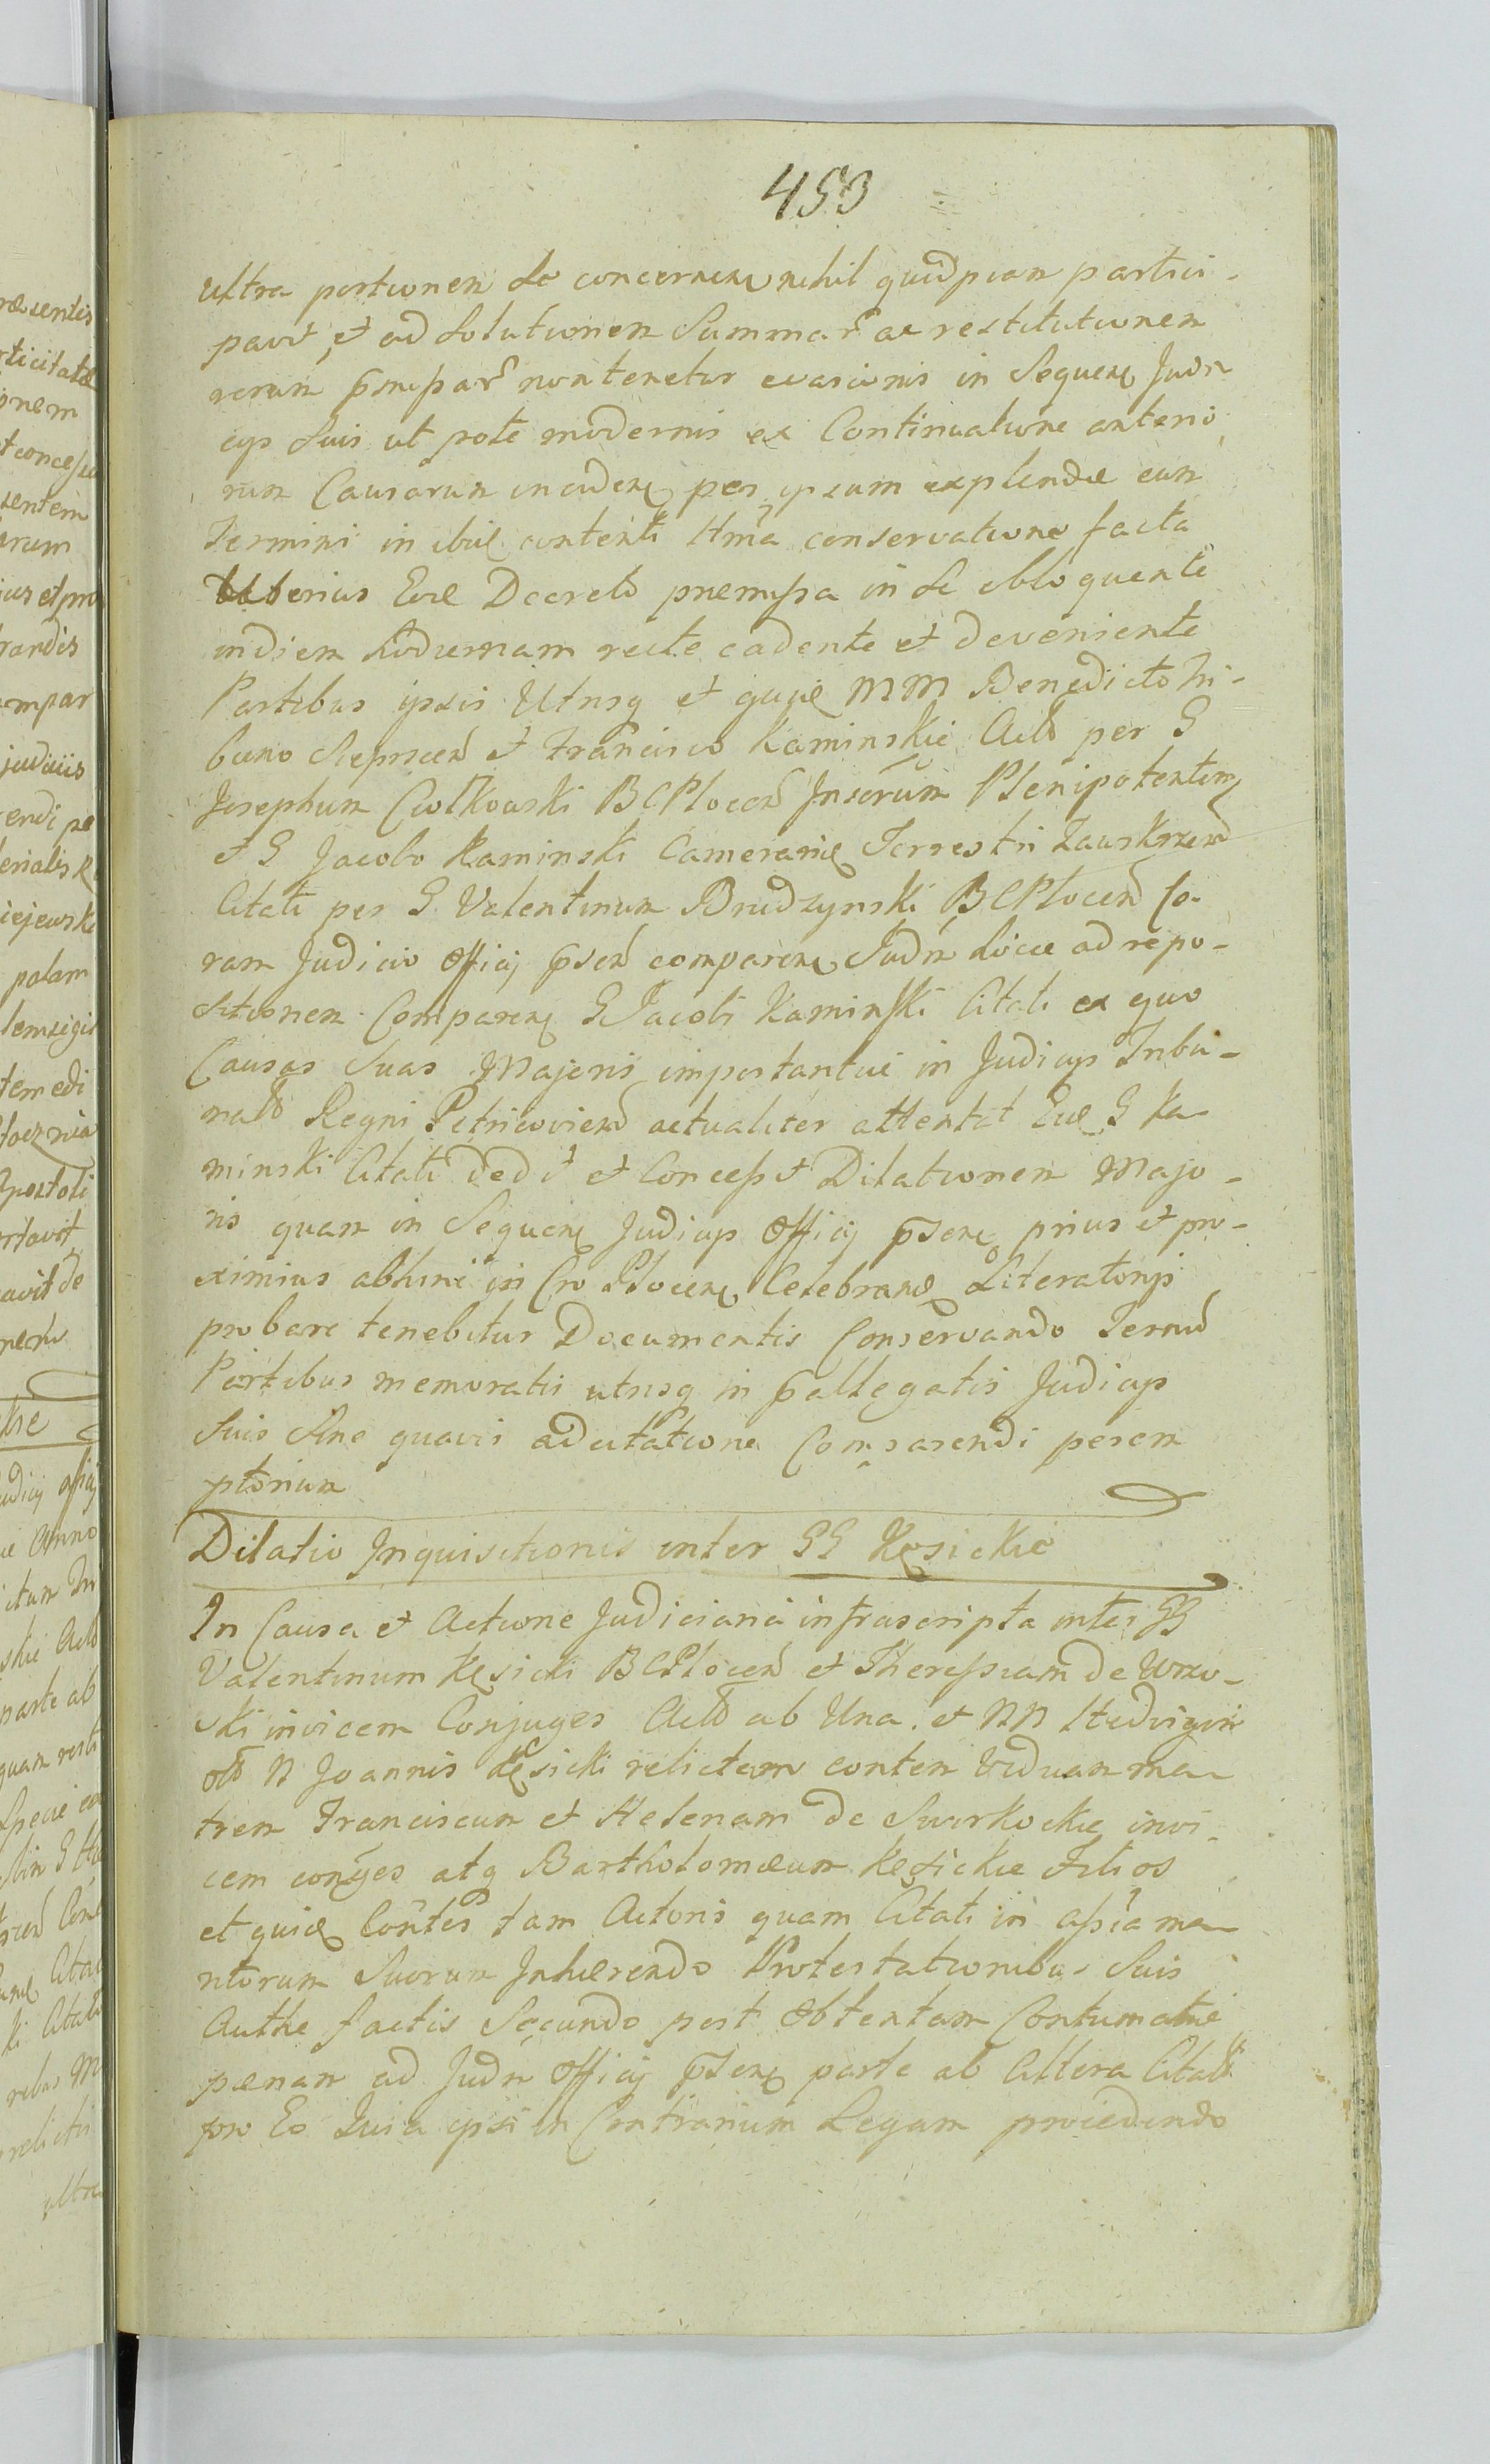 453
ultra portionem se concernen nihil quidpiam partici-
pavit, et ad solutionem Summar ac restitutionem
rerum non tenetur evasionis in Sequen Judn
cys Suis ut pote modernis ex Continuatione anterio
rum Causarum inciden per ipsum explendae eum
Termini in ibiq contenti conservatione facta
Uberius Eoq Decreto praemissa in se obloquente
in diem hodiernam recte cadente et deveniente
Partibus ipsis Utrisq et quiq MM Benedicto Tri-
buno Sieprscen et Francisco Kaminskie Acto per G
Josephum Ciolkowski BCPlocen Plenipotentem
et G Jacobo Kaminski Camerario Terrestri Zawskrzen
Citati per G Valentinum Brudzynski BCPlocen Co-
ram Judicio Officij psen comparen Judm hocce ad repo-
sitionem Comparen G Jacobi Kaminski Citati ex quo
Causas Suas Majoris importantiae in Judicys Tribu-
nals Regni Petricovien actualiter attentat G Ka
minski Citati dedit et Concessit Dilationem Majo-
ris quam in Sequen Judicys Officij psen prius et pro-
ximius abhinc in Cro Plocen Celebrand Literatorys
probare tenebitur Documentis Conservando Termn
Partibus memoratis utrisq in pallegatis Judicys
Suis Sine quavis adcitatione Comparendi perem
ptorium
Dilatio Inquisitionis inter GG Kęsickie
In Causa et Actione Judiciaria infrascripta inter GG
Valentinum Kęsicki BCPlocen et Theressiam de Wrzo-
ski invicem Conjuges Acto ab Una. et NN Hedvigim
olt N Joannis Kęsicki relictam contem Viduam ma
trem Franciscum et Helenam de Swirkockie invi-
cem conges atq Bartholomaeum Kęsickie Filios
et quiq Contes tam Actoris quam Citati in ma
ntorum Suorum Inhaerendo Protestationibus Suis
Authe factis Secundo post Obtentam Contumatiae
paenam ad Judm Officij psen parte ab Altera Citatt
pro Eo Quia ipsi in Contrarium Legum procedendo